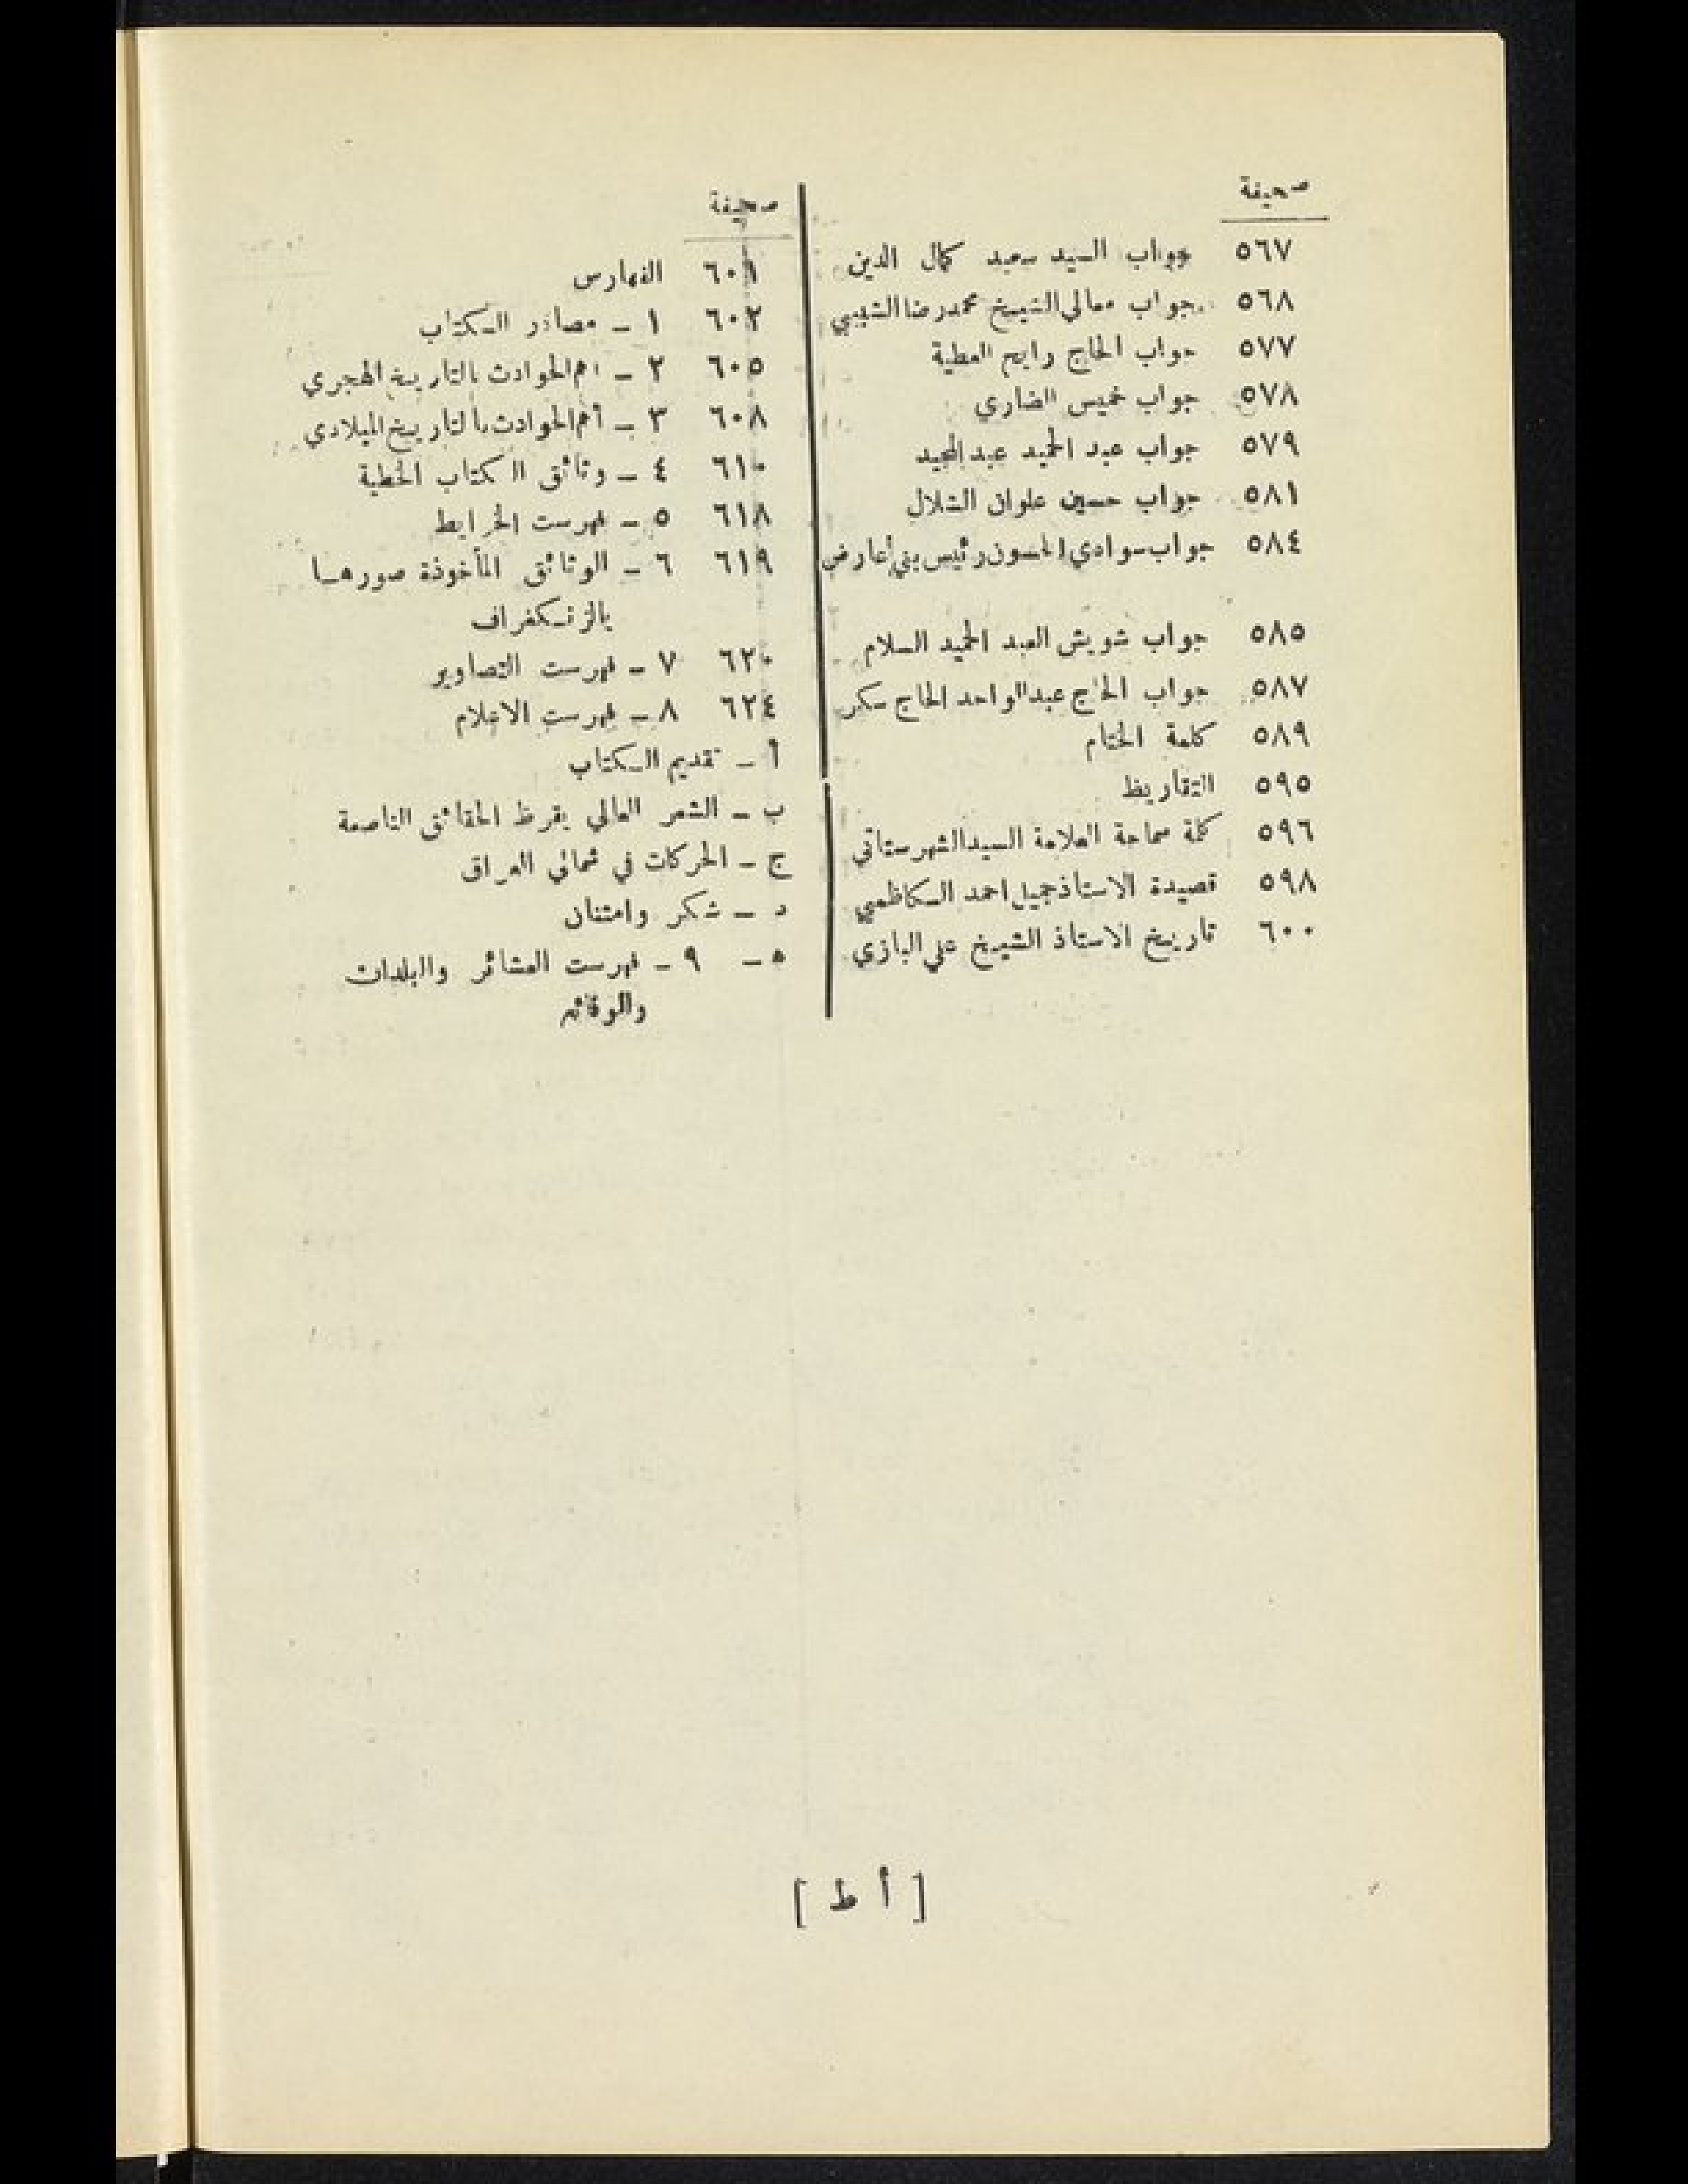 صحيفة
٥٦٧ جواب السيد سعيد كمال الدين
٥٦٨ جواب معالي الشيخ محمد رضا الشبيبي
٥٧٧ جواب الحاج رايح العطية
٥٧٨ جواب خميس الضاري
٥٧٩ جواب عبد الحميد عبد المجيد
٥٨١ جواب حسين علوان الشلال
٥٨٤ جواب سوادي الحسون رئيس بني أعارض
٥٨٥ جواب شويش العبد الحميد السلام
٥٨٧ جواب الحاج عبد الواحد الحاج سكر
٥٨٩ كلمة الختام
٥٩٥ التقاريظ
٥٩٦ كلمة سماحة العلامة السيد الشهرستاني
٥٩٨ قصيدة الاستاذ جميل احمد الكاظمي
٦٠٠ تاريخ الاستاذ الشيخ علي البازي
صحيفة
٦٠١ الفهارس
٦٠٢ ١ ـ مصادر الكتاب
٦٠٥ ٢ ـ اهم الحوادث بالتاريخ الهجري
٦٠٨ ٣ ـ أهم الحوادث بالتاريخ الميلادي
٦١٠ ٤ ـ وثائق الكتاب الخطية
٦١٨ ٥ ـ فهرست الخرايط
٦١٩ ٦ ـ الوثائق المأخوذة صورها
بالزنكغراف
٦٢٠ ٧ ـ فهرست التصاوير
٦٢٤ ٨ ـ فهرست الاعلام
أ ـ تقديم الكتاب
ب ـ الشعر العالي يقرظ الحقائق الناصعة
ج ـ الحركات في شمالي العراق
د ـ شكر وامتنان
ه ـ ٩ ـ فهرست العشائر والبلدان
والوقائع
[ أ ط ]